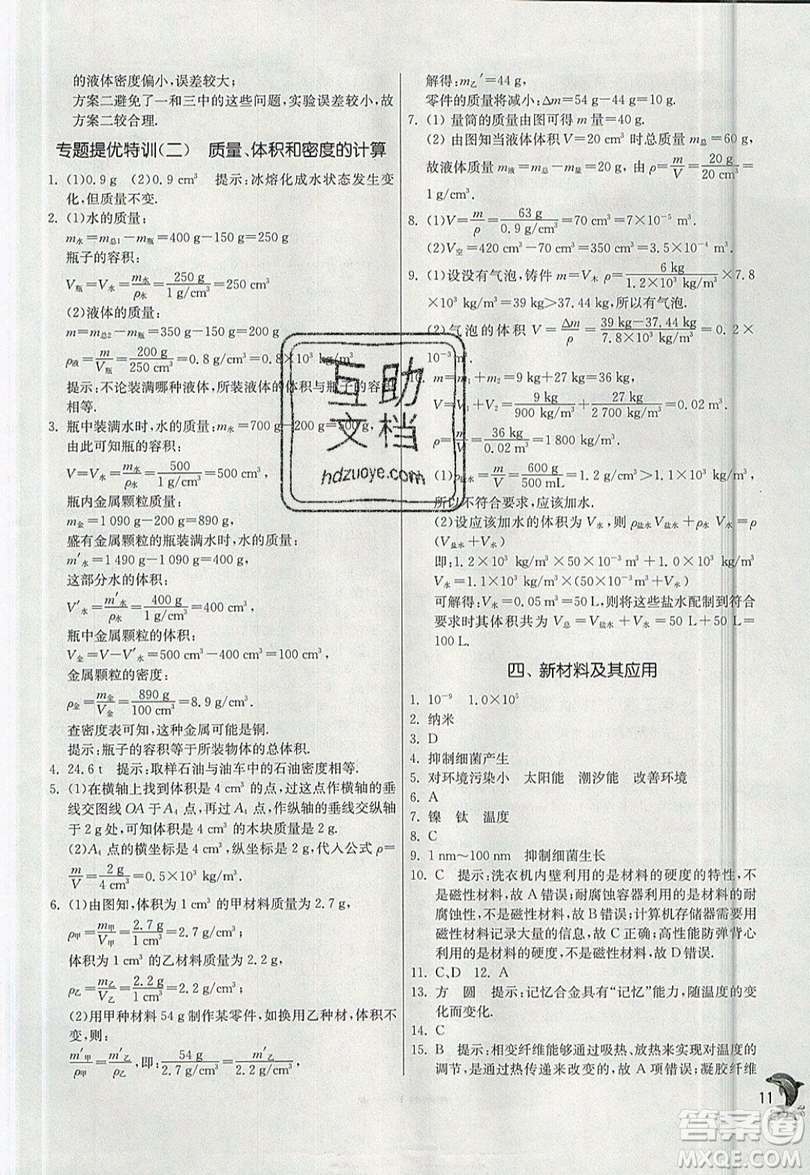 的液体密度偏小,误差较大;
方案二避免了一和三中的这些问题,实验误差较小,故
方案二较合理.
专题提优特训(二) 质量、体积和密度的计算
1. (1)0.9 g (2)0.9 cm³ 提示:冰熔化成水状态发生变
化,但质量不变.
2. (1)水的质量:
m水=m总1-m瓶=400 g-150 g=250 g
瓶子的容积:
V瓶=V水=m水/ρ水=250 g/1 g/cm³=250 cm³
(2)液体的质量:
m=m总2-m瓶=350 g-150 g=200 g
ρ液=m/V瓶=200 g/250 cm³=0.8 g/cm³=0.8×10³ kg/m³
提示:不论装满哪种液体,所装液体的体积与瓶子的容积
相等.
3. 瓶中装满水时,水的质量:m水=700 g-200 g=500 g
由此可知瓶的容积:
V=V水=m水/ρ水=500/1 g/cm³=500 cm³
瓶内金属颗粒质量:
m金=1 090 g-200 g=890 g,
盛有金属颗粒的瓶装满水时,水的质量:
m′水=1 490 g-1 090 g=400 g,
这部分水的体积:
V′水=m′水/ρ水=400 g/1 g/cm³=400 cm³,
瓶中金属颗粒的体积:
V金=V-V′水=500 cm³-400 cm³=100 cm³
金属颗粒的密度:
ρ金=m金/V金=890 g/100 cm³=8.9 g/cm³.
查密度表可知,这种金属可能是铜.
提示:瓶子的容积等于所装物体的总体积.
4. 24.6 t 提示:取样石油与油车中的石油密度相等.
5. (1)在横轴上找到体积是4 cm³的点,过这点作横轴的垂
线交图线OA于A₄点,再过A₄点,作纵轴的垂线交纵轴
于2 g处,可知体积是4 cm³的木块质量是2 g.
(2)A₄点的横坐标是4 cm³,纵坐标是2 g,代人公式ρ=
m/V=2 g/4 cm³=0.5 g/cm³=0.5×10³ kg/m³.
6. (1)由图知,体积为1 cm³的甲材料质量为2.7 g,
ρ甲=m甲/V甲=2.7 g/1 cm³=2.7 g/cm³
体积为1 cm³的乙材料质量为2.2 g,
ρ乙=m乙/V乙=2.2 g/1 cm³=2.2 g/cm³
(2)用甲种材料54 g制作某零件,如换用乙种材,体积不
变,则:
m′甲/ρ甲=m′乙/ρ乙,即:54 g/2.7 g/cm³=m′乙/2.2 g/cm³
解得:m乙′=44 g,
零件的质量将减小:Δm=54 g-44 g=10 g.
7. (1)量筒的质量由图可得m=40 g.
(2)由图知当液体体积V=20 cm³时总质量m总=60 g,
故液体质量m=m总-m筒=20 g,ρ=m/V=20 g/20 cm³=
1 g/cm³.
8. (1)V=m/ρ=63 g/0.9 g/cm³=70 cm³=7×10⁻⁵ m³.
(2)V空=420 cm³-70 cm³=350 cm³=3.5×10⁻⁴ m³.
9. (1)设没有气泡,铸件m=V木 ρ=6 kg/1.2×10³ kg/m³×7.8
×10³ kg/m³=39 kg>37.44 kg,所以有气泡.
(2)气泡的体积V=Δm/ρ=39 kg-37.44 kg/7.8×10³ kg/m³=0.2×
10⁻³ m³.
10. m=m1+m2=9 kg+27 kg=36 kg
V=V1+V2=9 kg/900 kg/m³+27 kg/2 700 kg/m³=0.02 m³
ρ=m/V=36 kg/0.02 m³=1 800 kg/m³.
(1)ρ=m/V=600 g/500 mL=1.2 g/cm³>1.1×10³ kg/m³,
所以不符合要求,应该加水.
(2)设应该加水的体积为V水,则ρ盐水V盐水+ρ水V水=ρ
(V盐水+V水)
即:1.2×10³ kg/m³×50×10⁻³ m³+1.0×10³ kg/m³×
V水=1.1×10³ kg/m³×(50×10⁻³ m³+V水)
可解得:V水=0.05 m³=50 L,则将这些盐水配制到符合
要求时其体积共为V总=V盐水+V水=50 L+50 L=
100 L.
四、新材料及其应用
1. 10⁻⁹ 1.0×10⁵
2. 纳米
3. D
4. 抑制细菌产生
5. 对环境污染小 太阳能 潮汐能 改善环境
6. A
7. 镍 钛 温度
8. C
9. 1 nm~100 nm 抑制细菌生长
10. C 提示:洗衣机内壁利用的是材料的硬度的特性,不
是磁性材料,故A错误;耐腐蚀容器利用的是材料的耐
腐蚀性,不是磁性材料,故B错误;计算机存储器需要用
磁性材料记录大量的信息,故C正确;高性能防弹背心
利用的是材料的硬度,不是磁性材料,故D错误.
11. C,D 12. A
13. 方 圆 提示:记忆合金具有“记忆”能力,随温度的变
化而变化.
14. C
15. B 提示:相变纤维能够通过吸热、放热来实现对温度的
的调节,是通过热传递来实现的;凝胶纤维
11
互助
文档
hdzuoye.com
答案圈
MXQE.COM